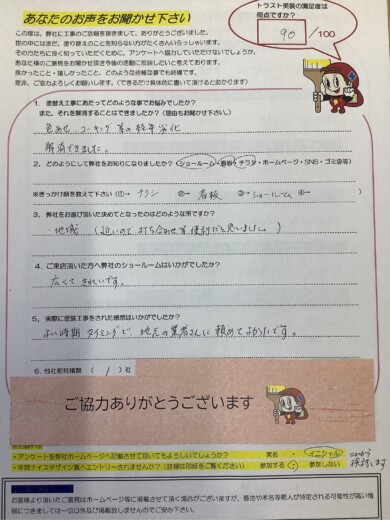 あなたのお声をお聞かせ下さい
トラスト美装の満足度は
何点ですか?
90 /100
この度は、弊社に工事のご依頼を頂きまして、ありがとうございました。
世の中にはまだ、塗り替えのことを知らない方がたくさんいらっしゃいます。
その方たちに良く知っていただくために、アンケートへ協力していただけないでしょうか。
あなた様のご意見をお聞かせ頂き今後の活動に反映したいと考えております。
良かったこと・嬉しかったこと、どのような些細な事でも結構です。
是非、ご協力よろしくお願いします。(できるだけ具体的に書いて頂けると助かります)
1. 塗替え工事にあたってどのような事でお悩みでしたか?
また、それを解消することはできましたか?(理由もお聞かせ下さい)
色あせ、コーキング等の経年劣化
解消できました。
2. どのようにして弊社をお知りになりましたか?(ショールーム・看板・チラシ・ホームページ・SNS・ゴミ袋等)
※きっかけ順を教えて下さい(①→ チラシ ②→ 看板 ③→ ショールーム ④→ )
3. 弊社をお選び頂いた決めてとなったのはどのような所ですか?
地域 (近いので打ち合わせ等便利だと思いました。)
4. ご来店頂いた方へ弊社のショールームはいかがでしたか?
広くてきれいです。
5. 実際に塗装工事をされた感想はいかがでしたか?
よい時期、タイミングで、地元の業者さんに頼めてよかったです。
6. 他社相見積数 ( 1 )社
ご協力ありがとうございます
・アンケートを弊社ホームページへ記載させて頂いてもよろしいでしょうか? 実名 ・ イニシャル
・年間ナイスデザイン賞へエントリーされませんか?(詳細は別紙をご覧ください) 参加する ・ 参加しない
これから
検討します
お客様より頂いたご意見はホームページ等に掲載させて頂く場合がございますが、番地や本名等個人が特定される可能性が高い情報
につきましては一切口外及び掲載致しませんのでご安心下さい。